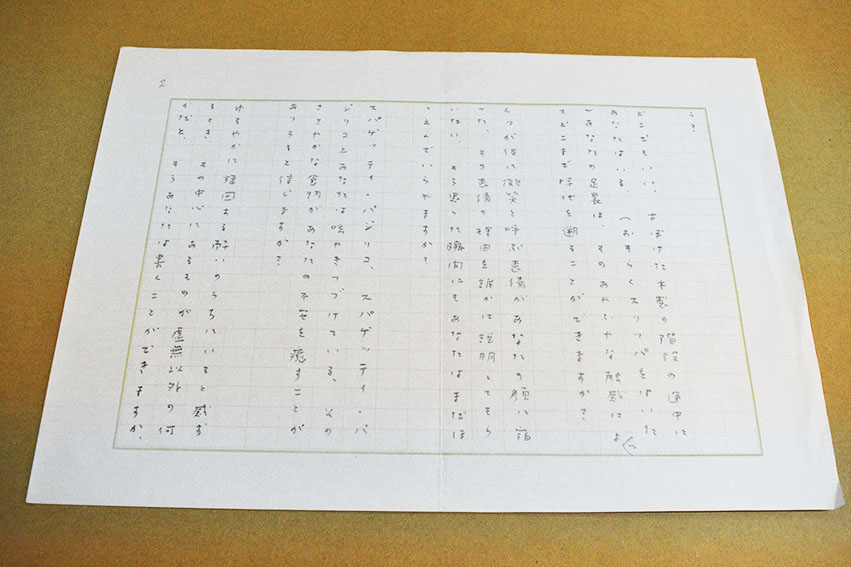 う?
どこでもいい、 古ぼけた木製の階段の途中に
あなたはいる (おそらくスリッパをはいた
)あなたの足裏は、そのあやしやな触感によっ
てどこまで時代を遡ることができますか?
人々が仮に微笑と呼ぶ表情があなたの顔に宿
った、その表情の理由を誰かに説明してもら
いたい、 そう思った瞬間にもあなたはまだほ
ゝえんでいられますか?
スパゲッティ・バジリコ、 スパゲッティ・バ
ジリコとあなたは呟やきつづけている、 その
ささやかな食物があなたの不安を癒すことが
ありうると信じますか?
ゆるやかに旋回する酔いのうちにいると感ず
るとき、 その中心にあるものが虚無以外の何
かだと、 そうあなたは書くことができますか、
2